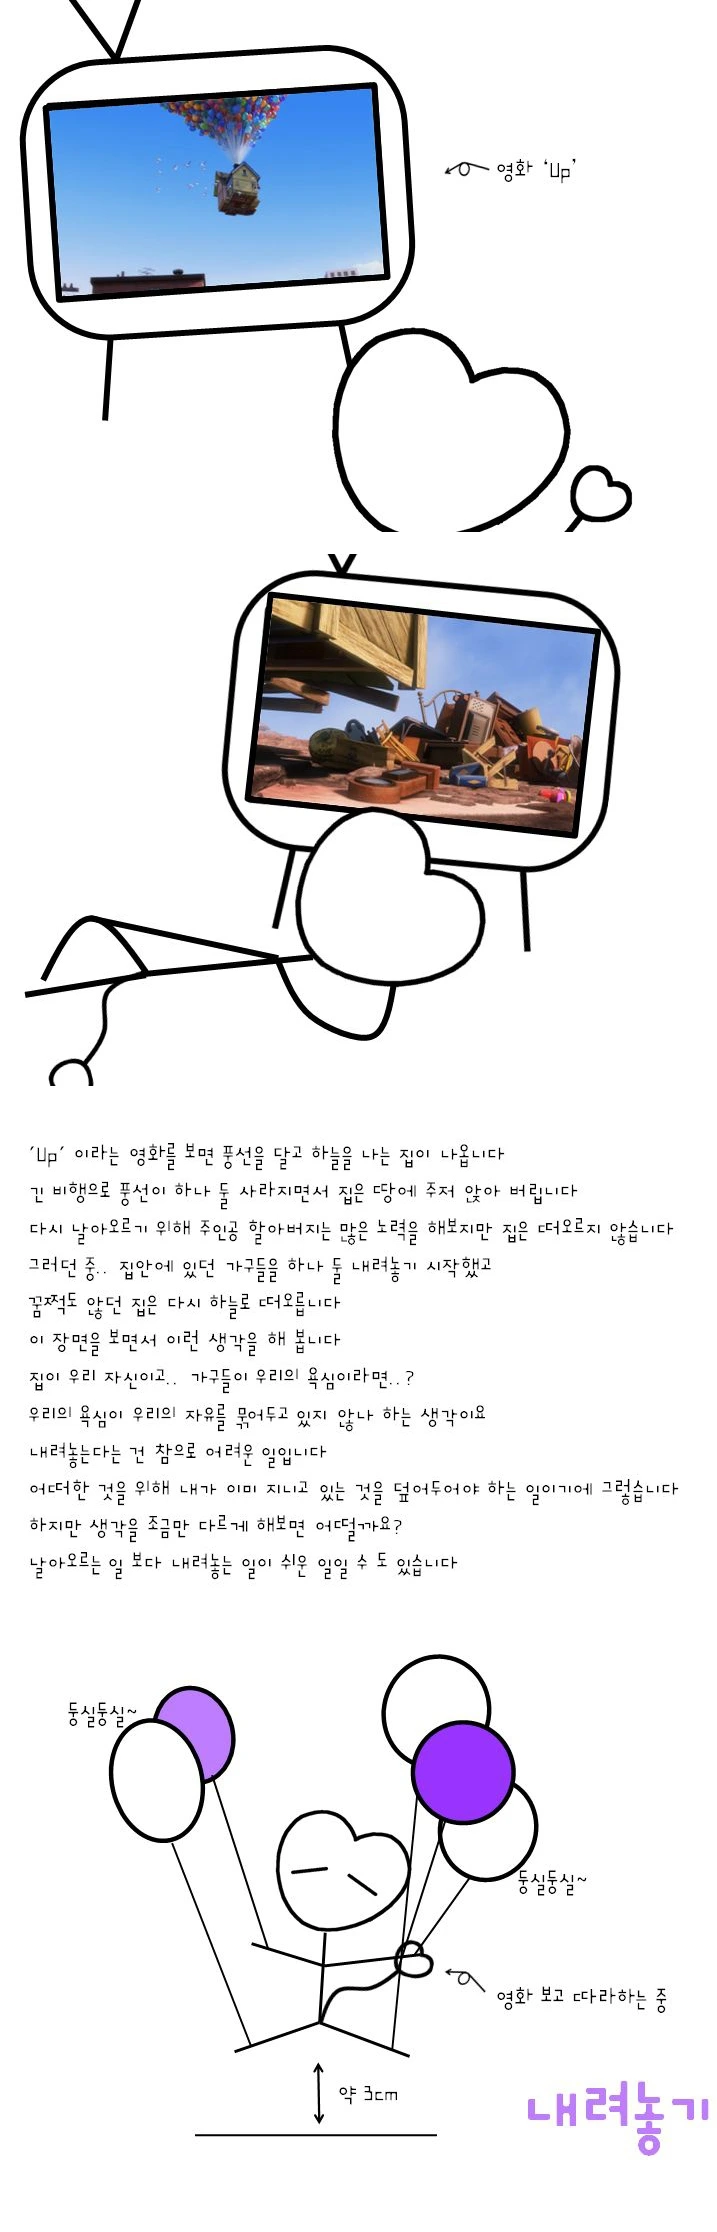 영화 'Up'
'Up' 이라는 영화를 보면 풍선을 달고 하늘을 나는 집이 나옵니다
긴 비행으로 풍선이 하나 둘 사라지면서 집은 땅에 주저 앉아 버립니다
다시 날아오르기 위해 주인공 할아버지는 많은 노력을 해보지만 집은 떠오르지 않습니다
그러던 중.. 집안에 있던 가구들을 하나 둘 내려놓기 시작했고
꿈쩍도 않던 집은 다시 하늘로 떠오릅니다
이 장면을 보면서 이런 생각을 해 봅니다
집이 우리 자신이고.. 가구들이 우리의 욕심이라면..?
우리의 욕심이 우리의 자유를 묶어두고 있지 않나 하는 생각이요
내려놓는다는 건 참으로 어려운 일입니다
어떠한 것을 위해 내가 이미 지니고 있는 것을 덮어두어야 하는 일이기에 그렇습니다
하지만 생각을 조금만 다르게 해보면 어떨까요?
날아오르는 일 보다 내려놓는 일이 쉬운 일일 수 도 있습니다
둥실둥실~
둥실둥실~
영화 보고 따라하는 중
약 3cm
내려놓기